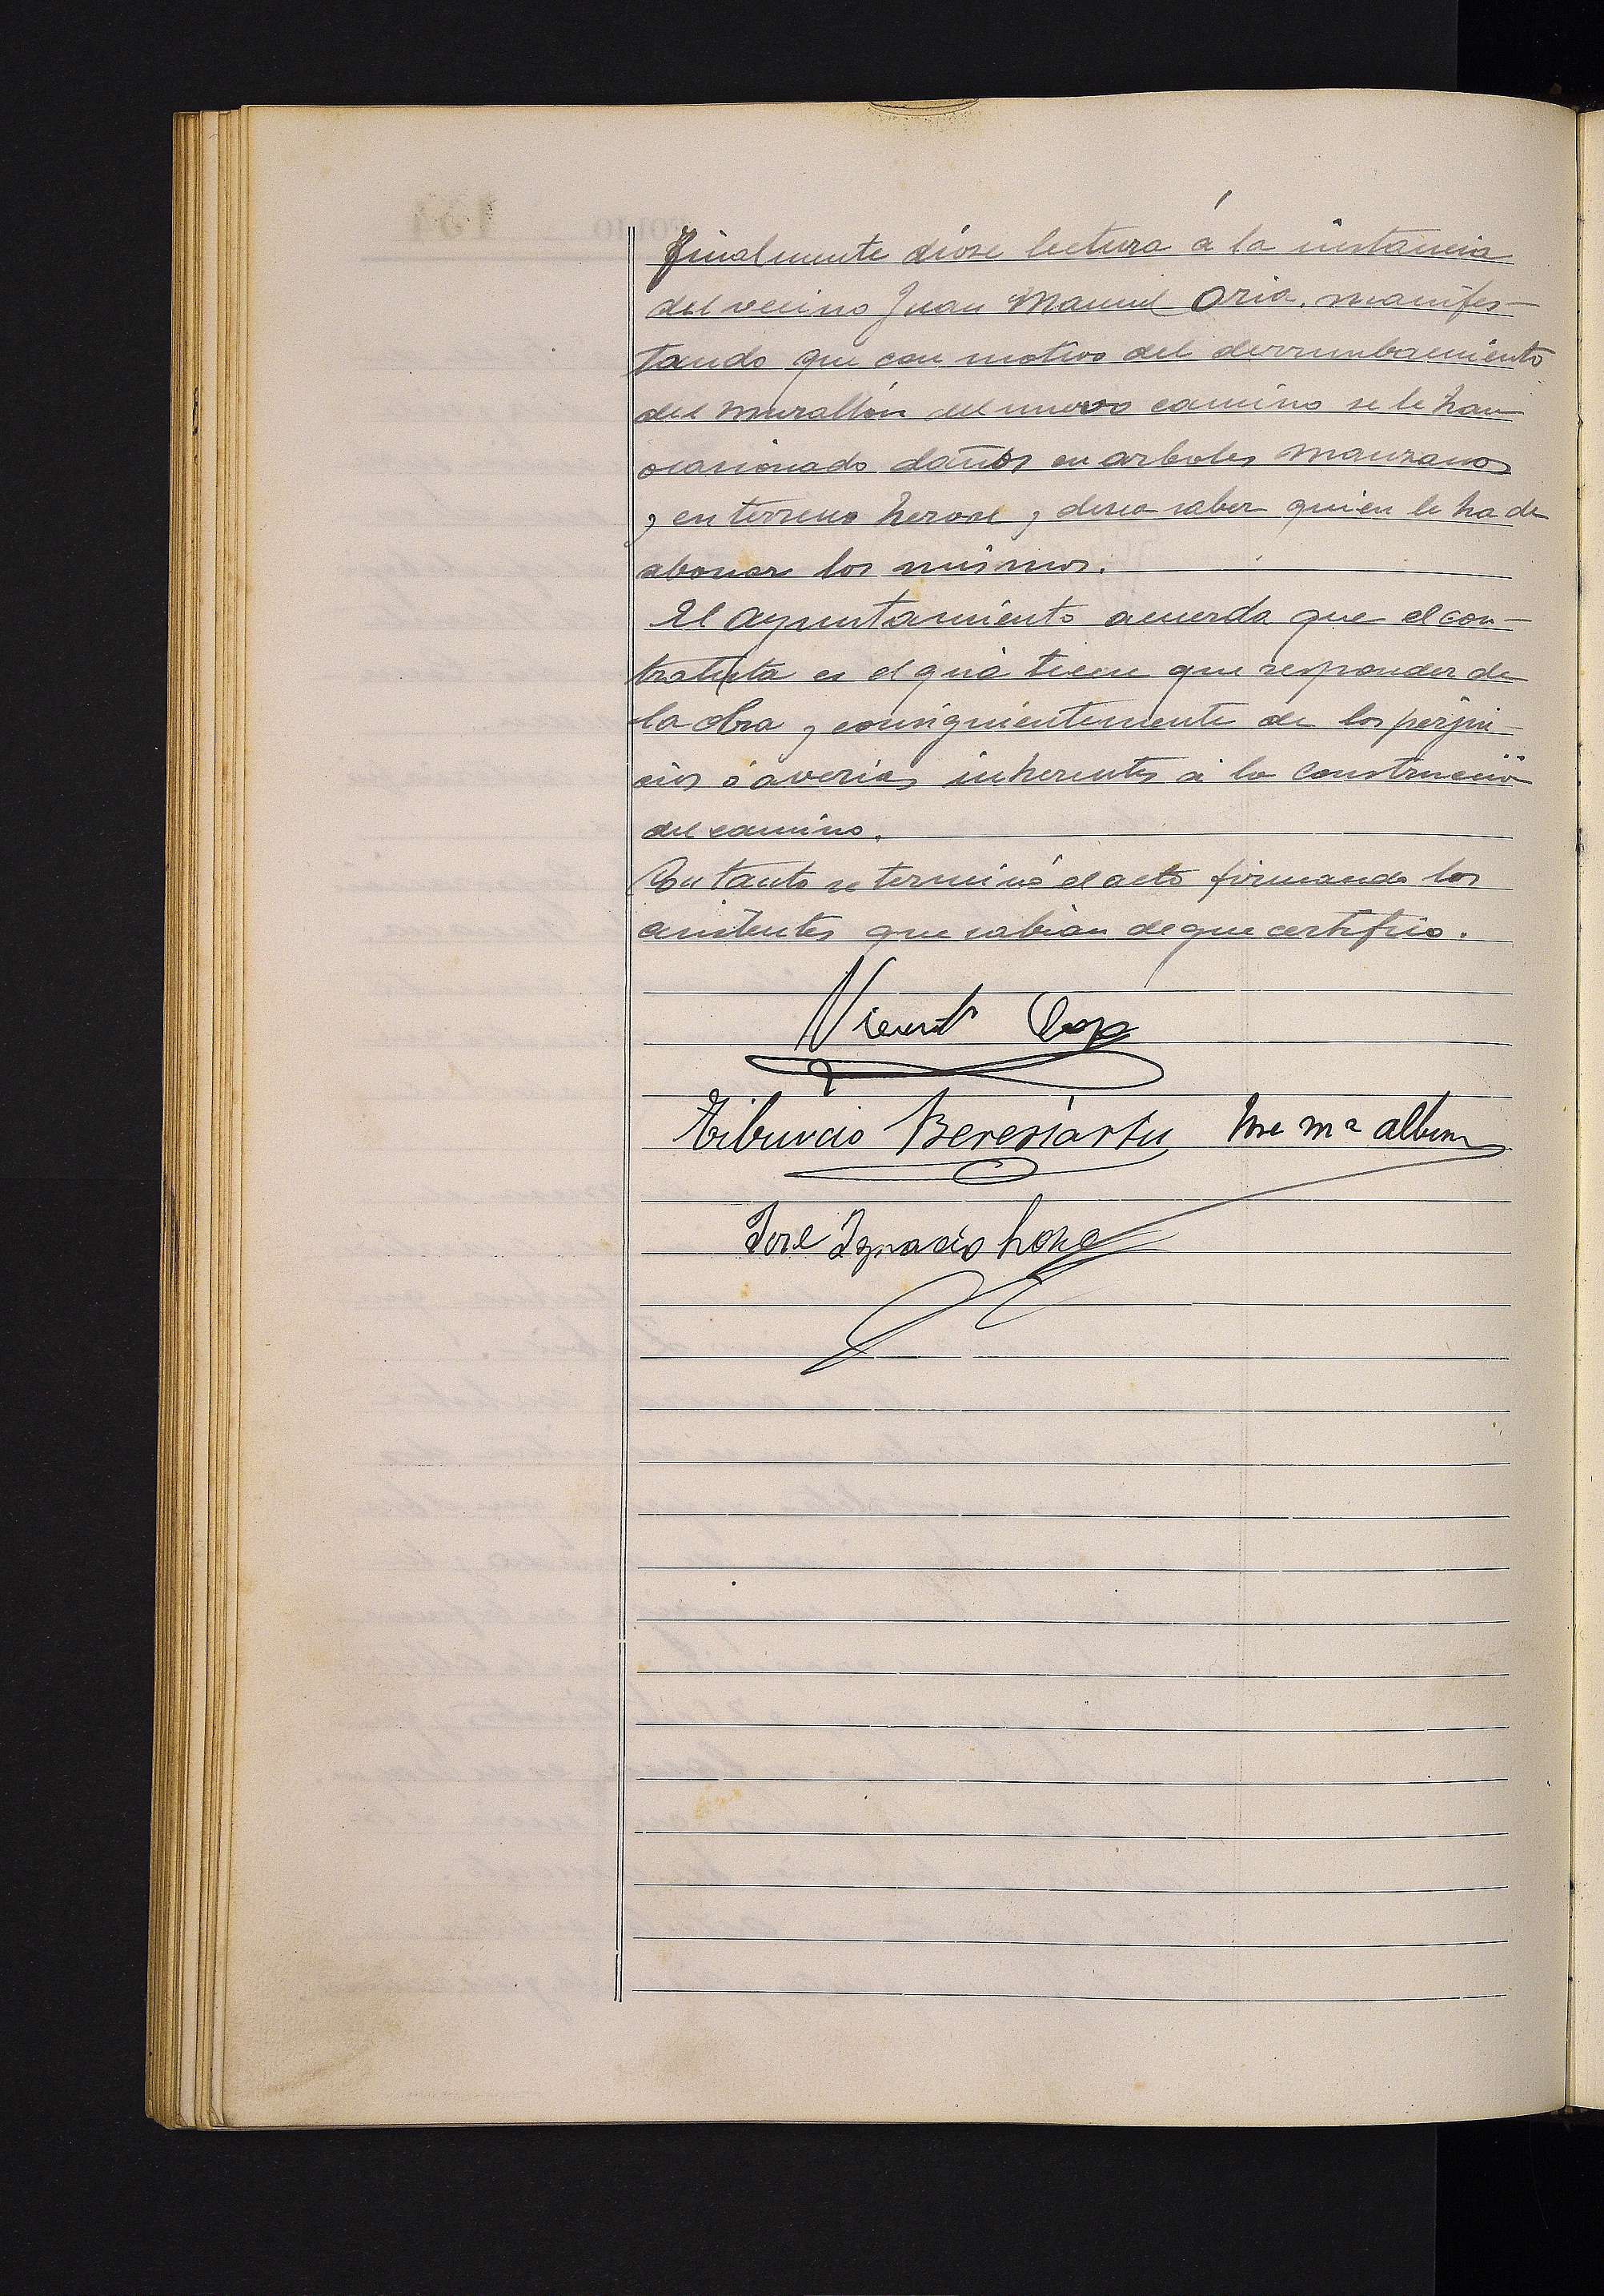 Finalmente dióse lectura á la instancia
del vecino Juan Manuel Oria, manifes-
tando que con motivo del derrumbamiento
del murallón del nuevo camino se le han
ocasionado daños en arboles manzanos
y en terreno herose y desea saber quien le ha de
abonar los mismos.
El Ayuntamiento acuerda que el con-
tratista es el que tiene que responder de
la obra y consiguientemente de los perjui-
cios ó averias inherentes á la construcción
del camino.
En tanto se terminó el acto firmando los
asistentes que sabian de que certifico.
Vicente
Tiburcio Beresiartu José Mª
José Ignacio